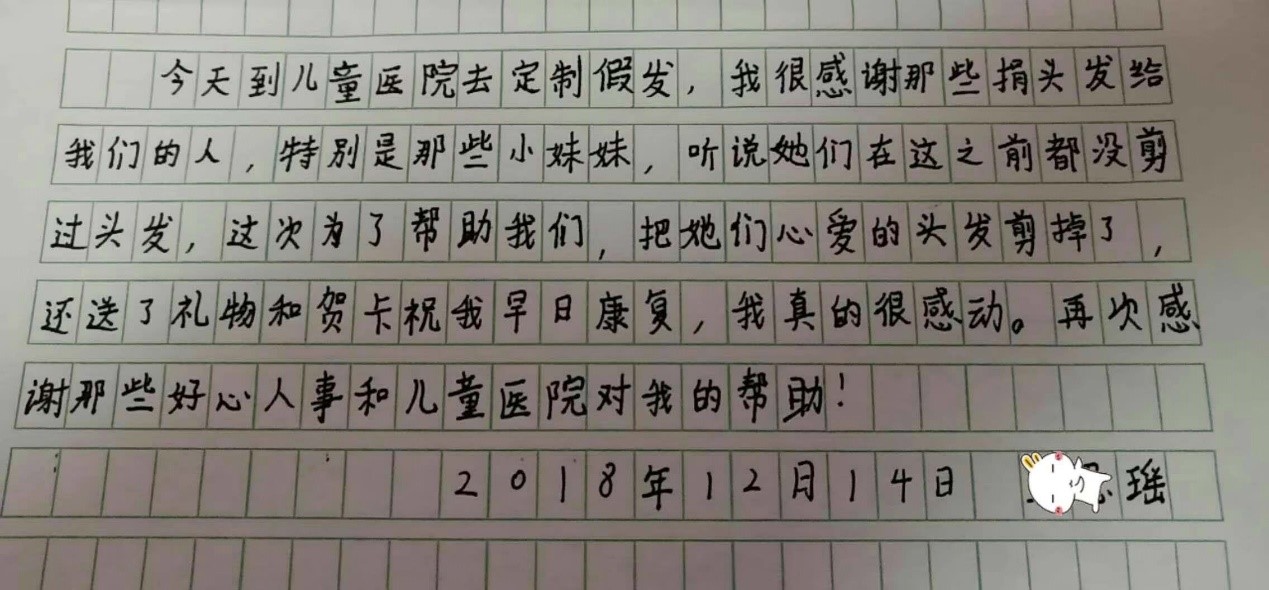 今天到儿童医院去定制假发，我很感谢那些捐头发给
我们的人，特别是那些小妹妹，听说她们在这之前都没剪
过头发，这次为了帮助我们，把她们心爱的头发剪掉了，
还送了礼物和贺卡祝我早日康复，我真的很感动。再次感
谢那些好心人事和儿童医院对我的帮助！
2018年12月14日 瑶